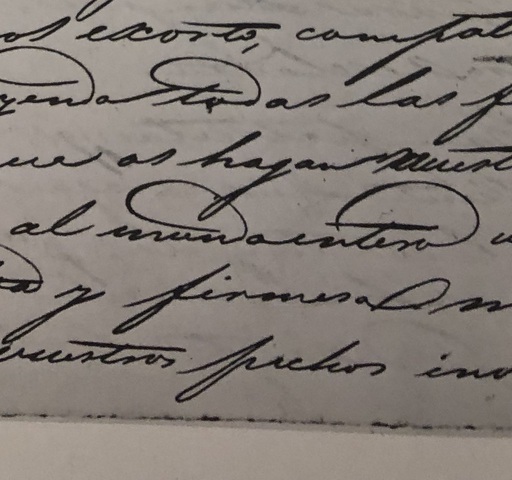 os exorto, compat
yendo todas las f
que os hagan muest
al mundo entero
y firmesa
vuestros pechos ino